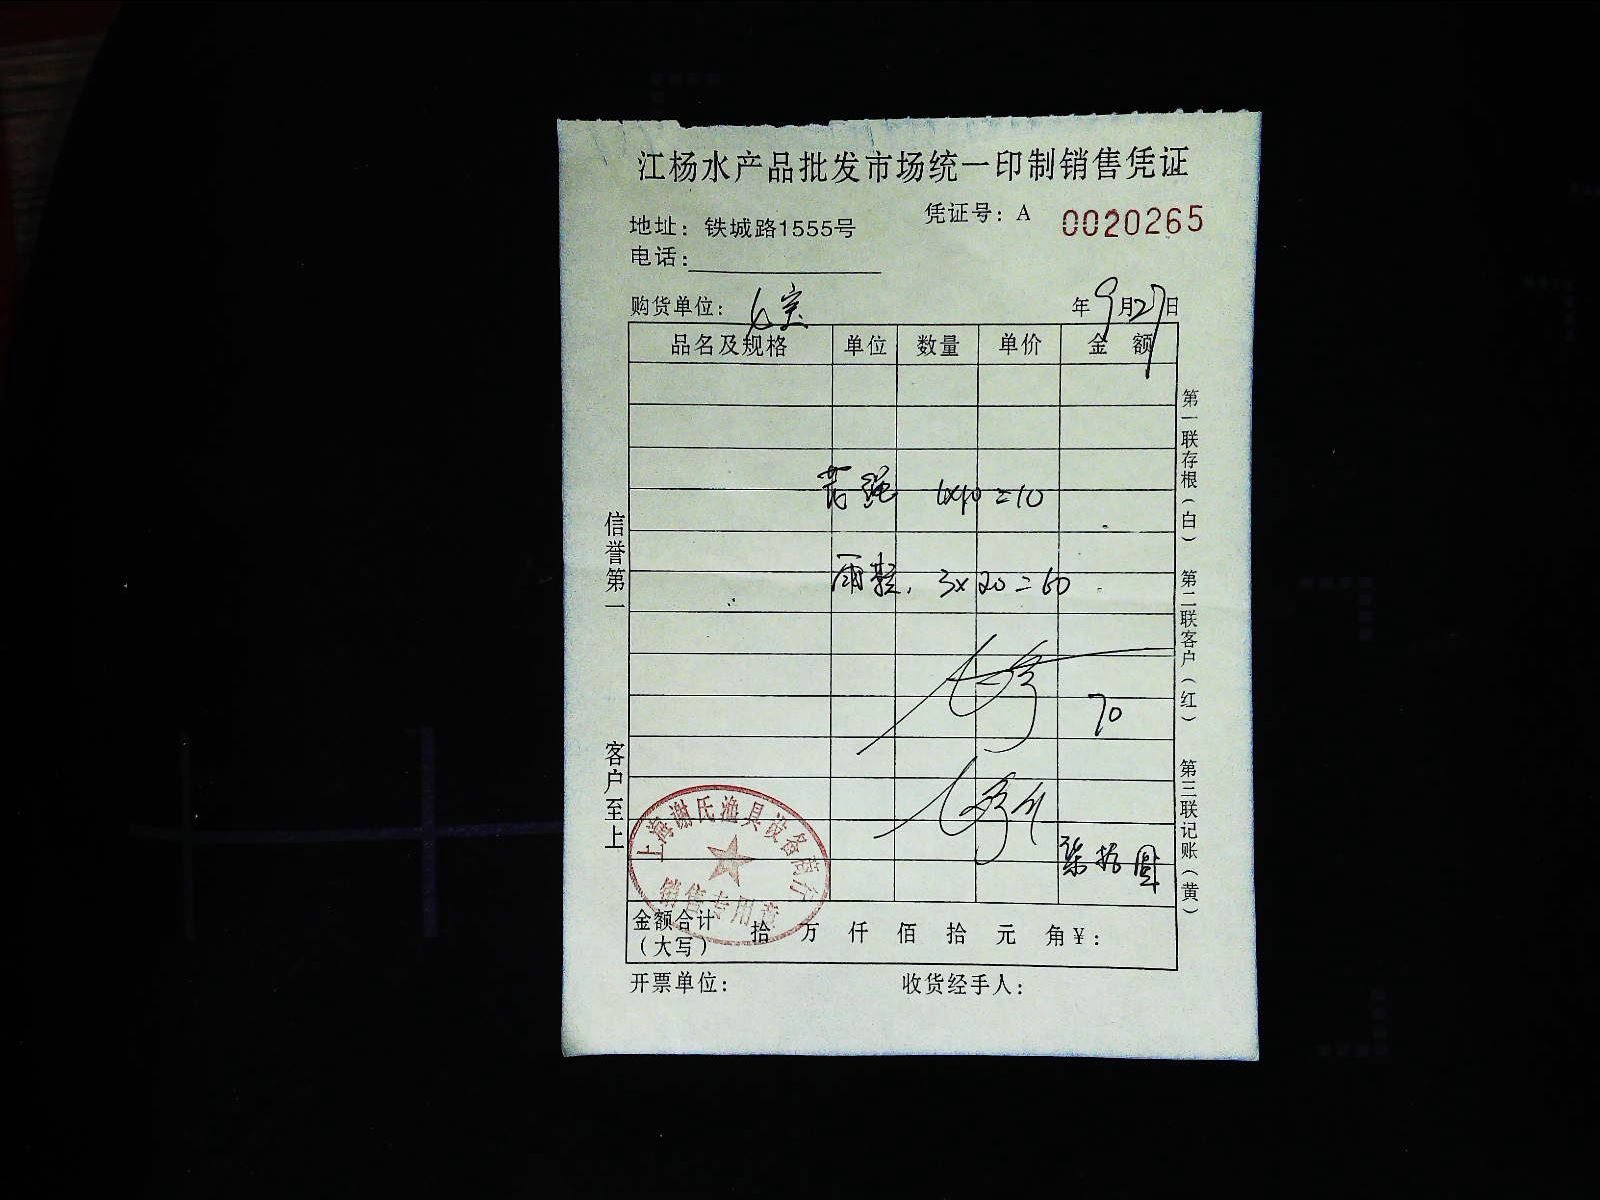 江杨水产品批发市场统一印制销售凭证
凭证号：A 0020265
地址：铁城路1555号
电话：
购货单位： 七宝 年9月27日
品名及规格 单位 数量 单价 金 额
绳 =10
雨鞋. 3×20=60
70
柒拾圆
金额合计（大写） 拾 万 仟 佰 拾 元 角￥：
开票单位： 收货经手人：
信誉第一
客户至上
第一联存根（白） 第二联客户（红） 第三联记账（黄）
上海谢氏渔具设备商行
销售专用章